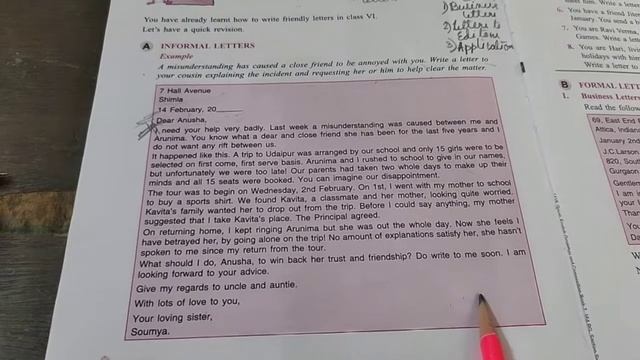 You have already learnt how to write friendly letters in class VI.
Let's have a quick revision.
A INFORMAL LETTERS
Example
A misunderstanding has caused a close friend to be annoyed with you. Write a letter to
your cousin explaining the incident and requesting her or him to help clear the matter.
7 Hall Avenue
Shimla
14 February, 20
Dear Anusha,
I need your help very badly. Last week a misunderstanding was caused between me and
Arunima. You know what a dear and close friend she has been for the last five years and I
do not want any rift between us.
It happened like this. A trip to Udaipur was arranged by our school and only 15 girls were to be
selected on first come, first serve basis. Arunima and I rushed to school to give in our names,
but unfortunately we were too late! Our parents had taken two whole days to make up their
minds and all 15 seats were booked. You can imagine our disappointment.
The tour was to begin on Wednesday, 2nd February. On 1st, I went with my mother to school
to buy a sports shirt. We found Kavita, a classmate and her mother, looking quite worried.
Kavita's family wanted her to drop out from the trip. Before I could say anything, my mother
suggested that I take Kavita's place. The Principal agreed.
On returning home, I kept ringing Arunima but she was out the whole day. Now she feels I
have betrayed her, by going alone on the trip! No amount of explanations satisfy her, she hasn't
spoken to me since my return from the tour.
What should I do, Anusha, to win back her trust and friendship? Do write to me soon. I am
looking forward to your advice.
Give my regards to uncle and auntie.
With lots of love to you,
Your loving sister,
Soumya.
1) Business
letters
2) Letters to
Editors
3) Application
6. You have a friend
January. You send a
7. You are Ravi Verma,
Games. Write a
8. You are Hari,
holidays with him
Write a letter to
B FORMAL LETT
1. Business Letters
Read the follow
69, East End
Attica, Indian
January 2nd
J.C.Larson
820, Sou
Gurgaon
Gentlem
I am
your
Than
You
Da